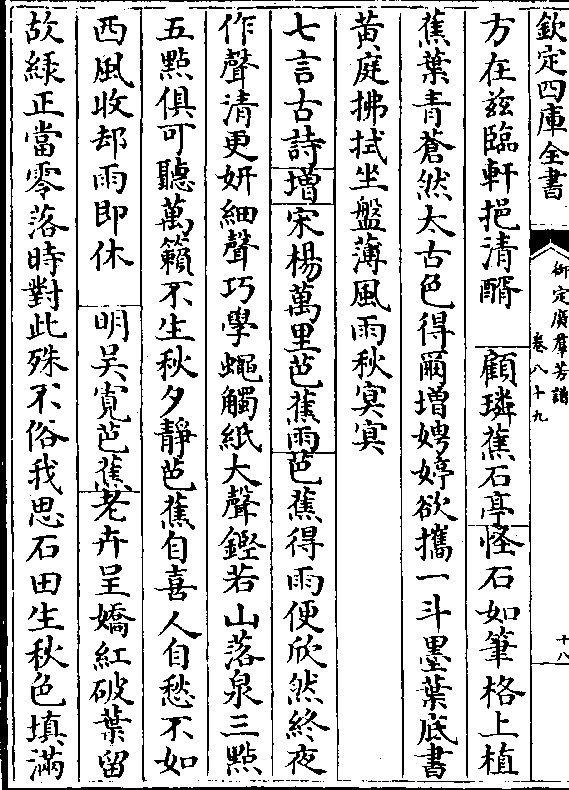 欽定四庫全書
御定廣羣芳譜
卷八十九
十八
方在兹臨軒挹清醑　顧璘蕉石亭怪石如筆格上植
蕉葉青蒼然太古色得爾增娉婷欲攜一斗墨葉底書
黃庭拂拭坐盤薄風雨秋冥冥
七言古詩增宋楊萬里芭蕉雨芭蕉得雨便欣然終夜
作聲清更妍細聲巧學蠅觸紙大聲鏗若山落泉三點
五點俱可聽萬籟不生秋夕靜芭蕉自喜人自愁不如
西風收却雨即休　明吳寛芭蕉老卉呈嬌紅破葉留
故緑正當零落時對此殊不俗我思石田生秋色填滿